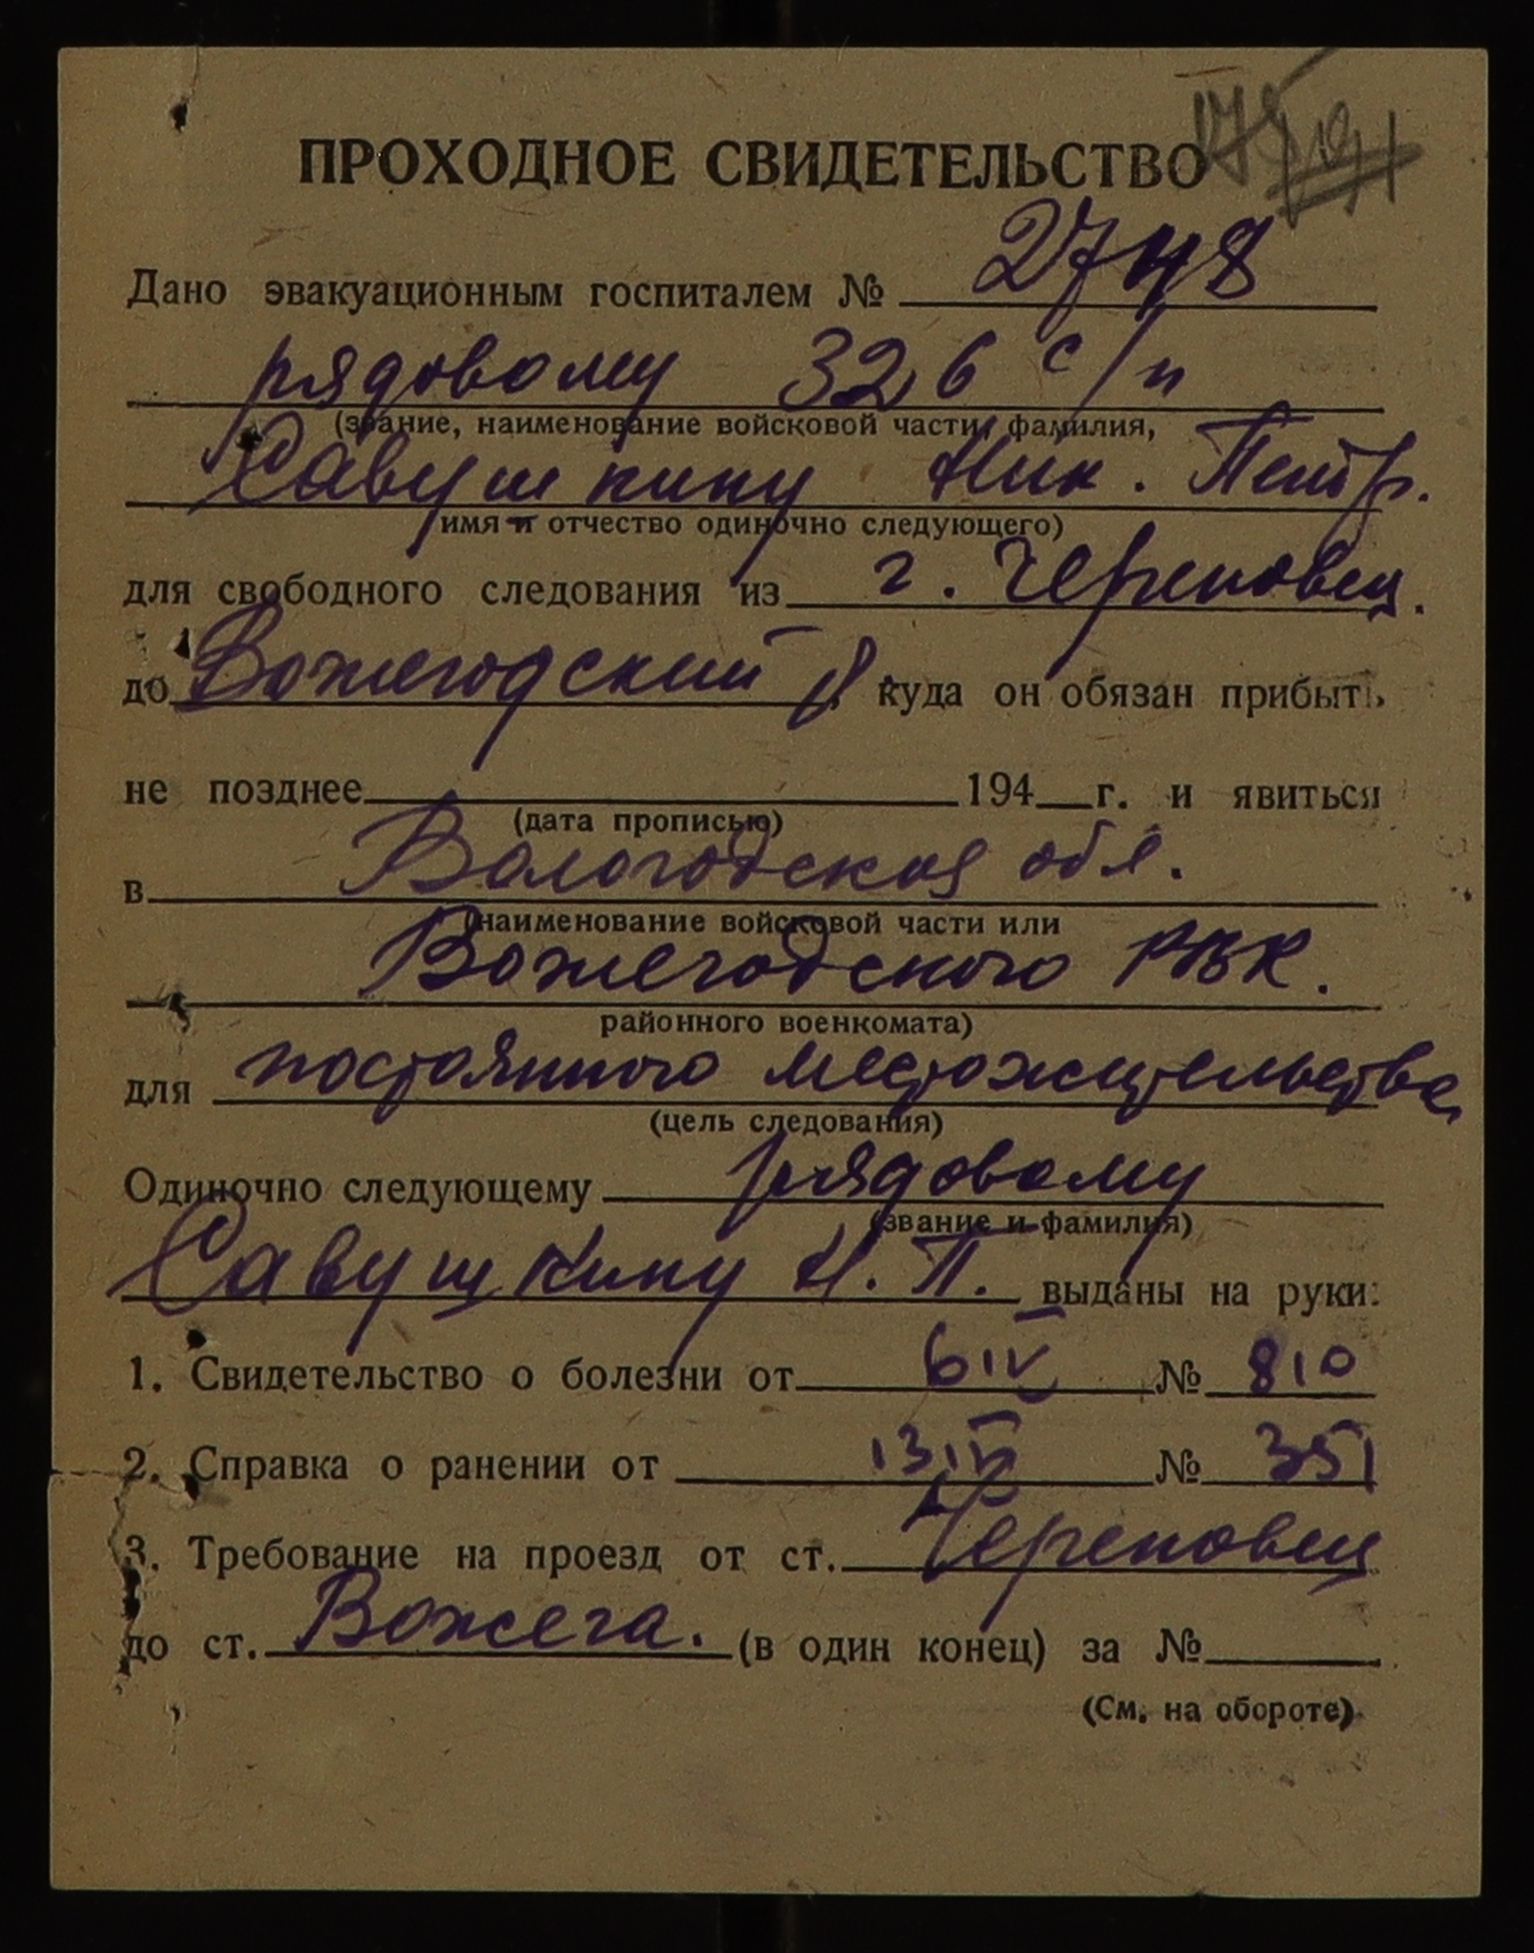 ПРОХОДНОЕ СВИДЕТЕЛЬСТВО
Дано эвакуационным госпиталем № 2748
рядовому 326 с/п
(звание, наименование войсковой части, фамилия,
Савушкину Ник. Петр.
имя и отчество одиночно следующего)
для свободного следования из г. Череповец.
до Вожегодский р. куда он обязан прибыть
не позднее 194 г. и явиться
(дата прописью)
в Вологодская обл.
(наименование войсковой части или
Вожегодского РВК.
районного военкомата)
для постоянного местожительства
(цель следования)
Одиночно следующему рядовому
(звание и фамилия)
Савушкину Н. П. выданы на руки:
1. Свидетельство о болезни от 6 IV № 810
2. Справка о ранении от 13.IV № 351
3. Требование на проезд от ст. Череповец
до ст. Вожега. (в один конец) за №
(См. на обороте)